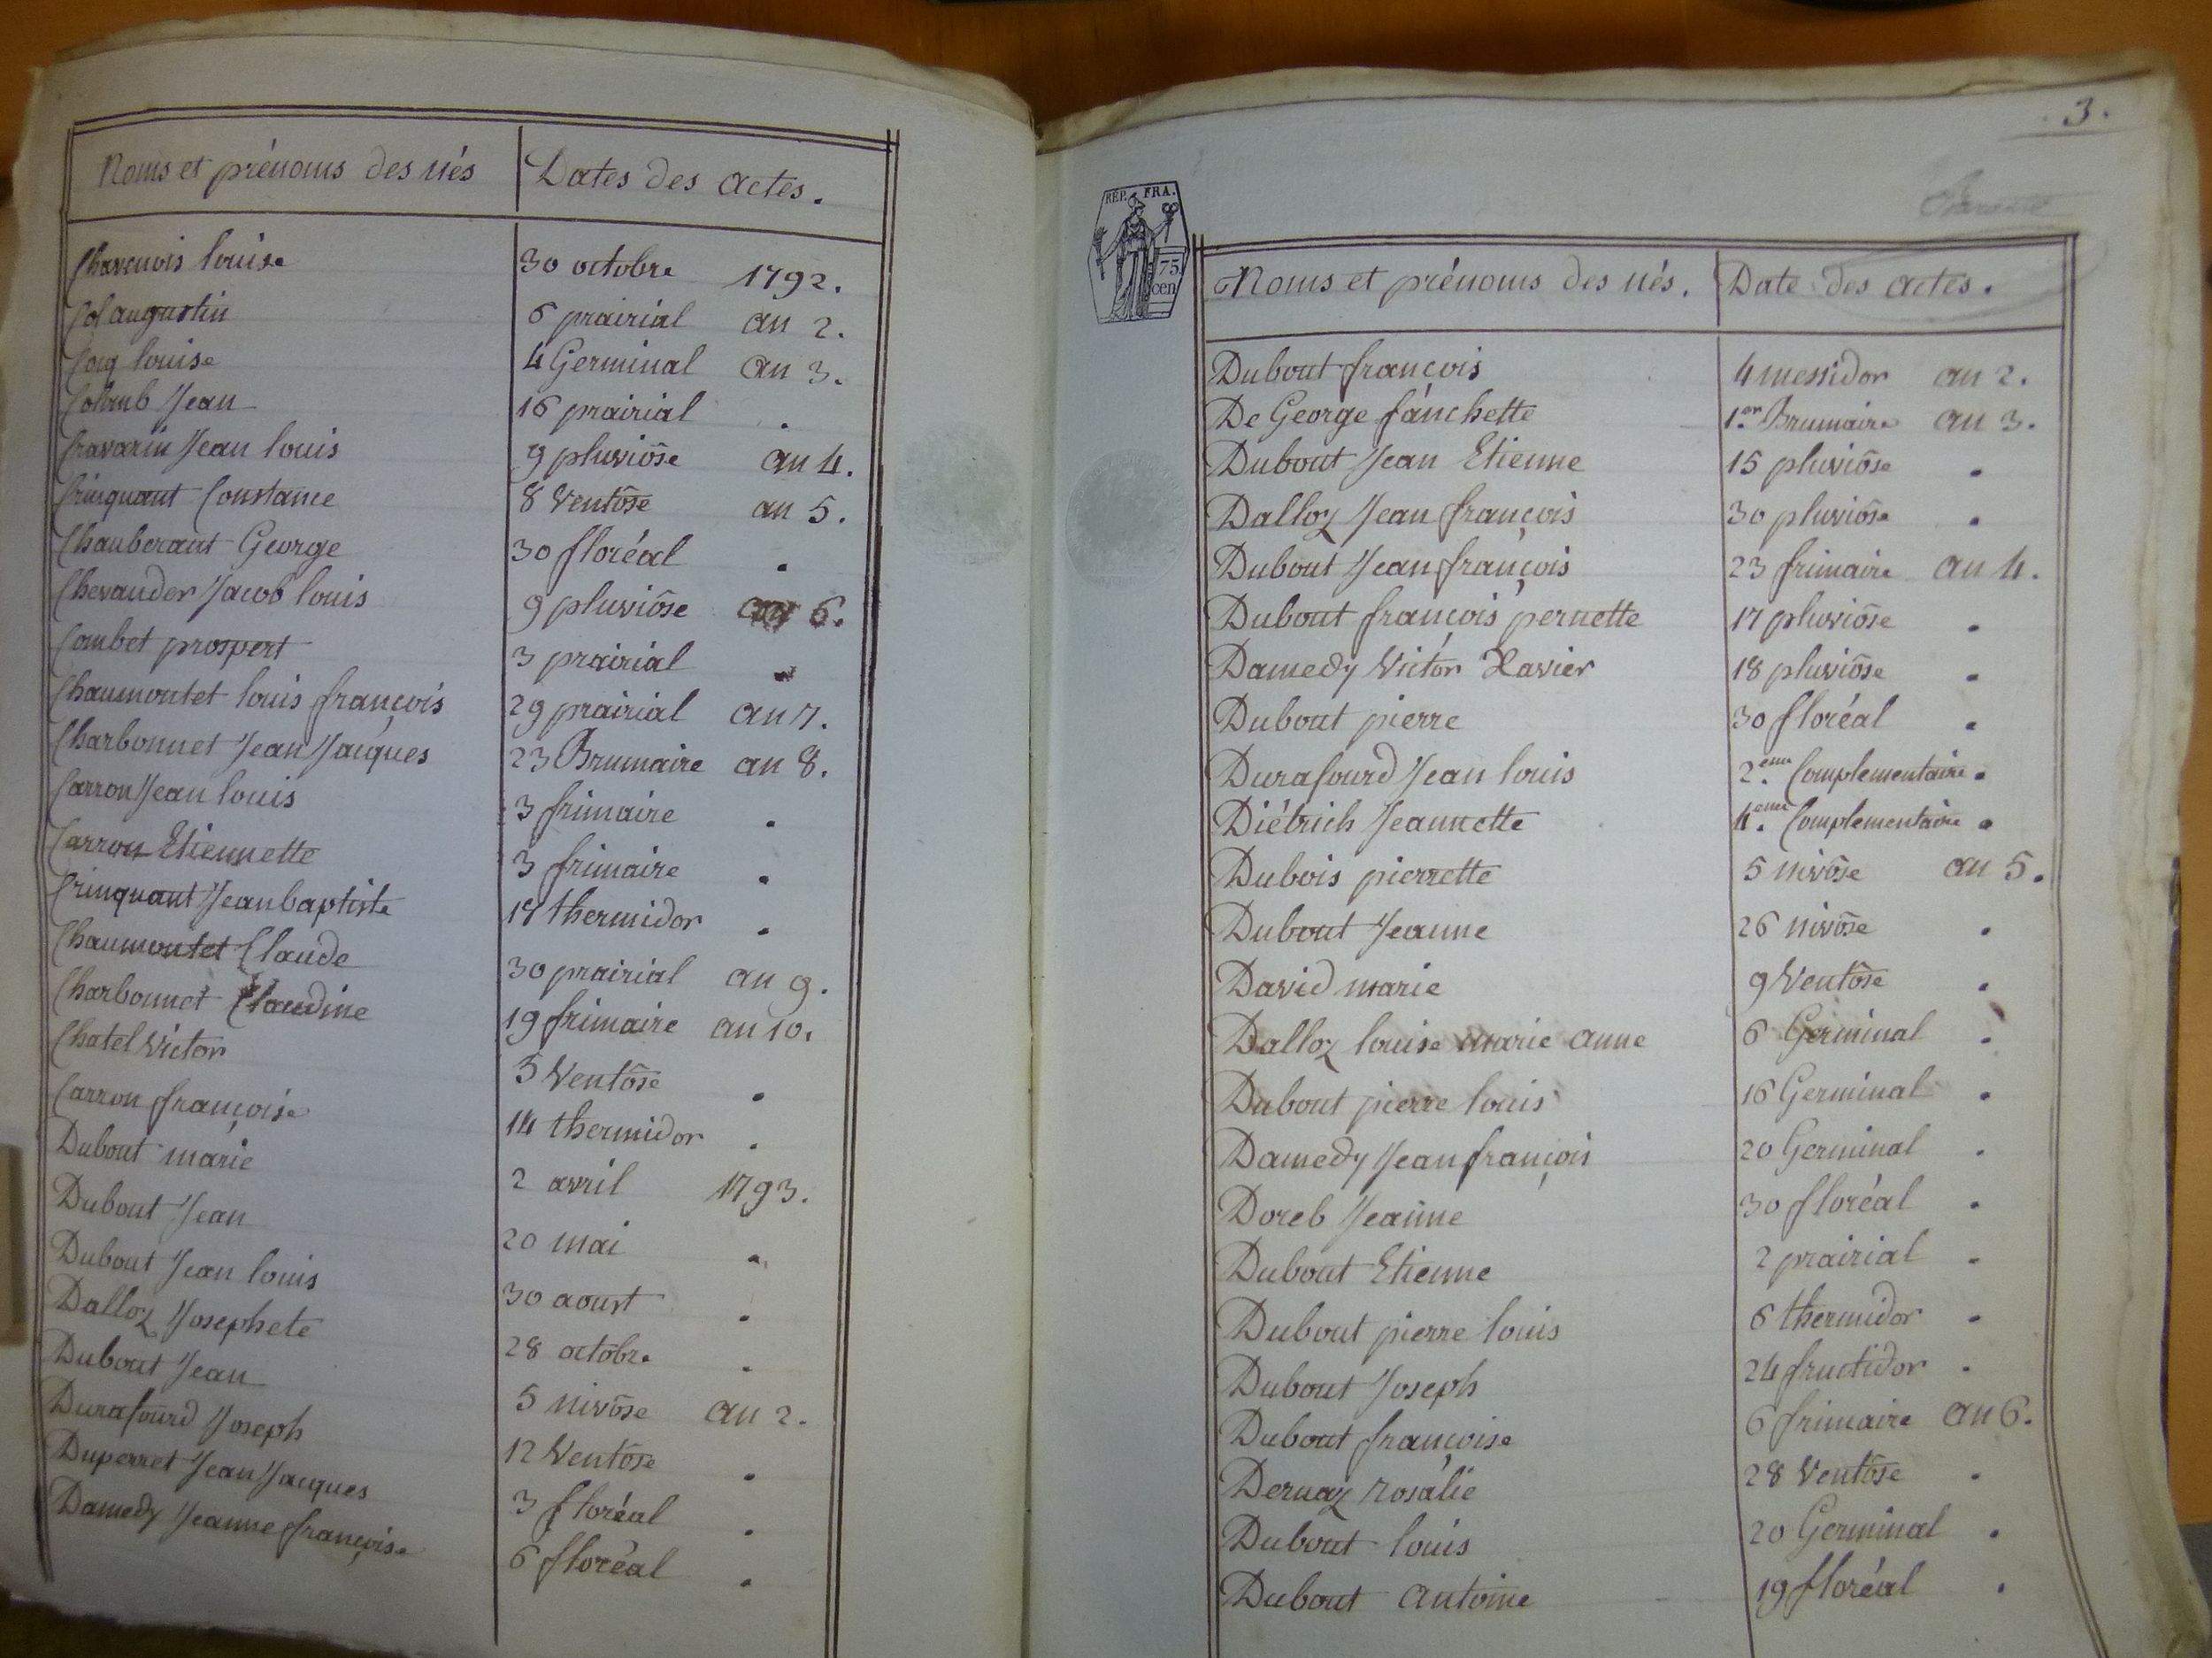 Noms et prénoms des nés Dates des actes.
Charenois louise 30 octobre 1792.
Col augustin 6 prairial an 2.
Coig louise 4 Germinal an 3.
Jean 16 prairial .
Cravarin Jean louis 9 pluviôse an 4.
Crinquant Constance 8 Ventôse an 5.
Chauberant George 30 floréal .
Chevander Jacob louis 9 pluviôse an 6.
Combet prospert 3 prairial "
Chaumontet louis françois 29 prairial an 7.
Charbonnet Jean Jacques 23 Brumaire an 8.
Carron Jean louis 3 frimaire .
Carron Etiennette 3 frimaire .
Crinquant Jean baptiste 18 thermidor .
Chaumontet Claude 30 prairial an 9.
Charbonnet Claudine 19 frimaire an 10.
Chatel Victor 5 Ventôse .
Carron françoise 14 thermidor .
Dubout marie 2 avril 1793.
Dubout Jean 20 mai "
Dubout Jean louis 30 aoust .
Dalloz Josephete 28 octobre .
Dubout Jean 5 nivôse an 2.
Durafourd Joseph 12 Ventôse .
Duperret Jean Jacques 3 floréal .
Damedy Jeanne françoise 6 floréal .
3.
REP. FRA.
75
cen
Noms et prénoms des nés. Date des actes.
Dubout françois 4 messidor an 2.
De George fanchette 1er Brumaire an 3.
Dubout Jean Etienne 15 pluviôse .
Dalloz Jean françois 30 pluviôse .
Dubout Jean françois 23 frimaire an 4.
Dubout françois pernette 17 pluviôse .
Damedy Victor Xavier 18 pluviôse .
Dubout pierre 30 floréal .
Durafourd Jean louis 2.eme Complementaire .
Diétrich Jeannette 4.eme Complementaire .
Dubois pierrette 5 nivôse an 5.
Dubout Jeanne 26 nivôse .
David marie 9 Ventôse .
Dalloz louise marie anne 6 Germinal .
Dubout pierre louis 16 Germinal .
Damedy Jean françois 20 Germinal .
Doreb Jeanne 30 floréal .
Dubout Etienne 2 prairial .
Dubout pierre louis 6 thermidor .
Dubout Joseph 24 fructidor .
Dubout françoise 6 frimaire an 6.
Dernaz rosalie 28 Ventôse .
Dubout louis 20 Germinal .
Dubout antoine 19 floréal .